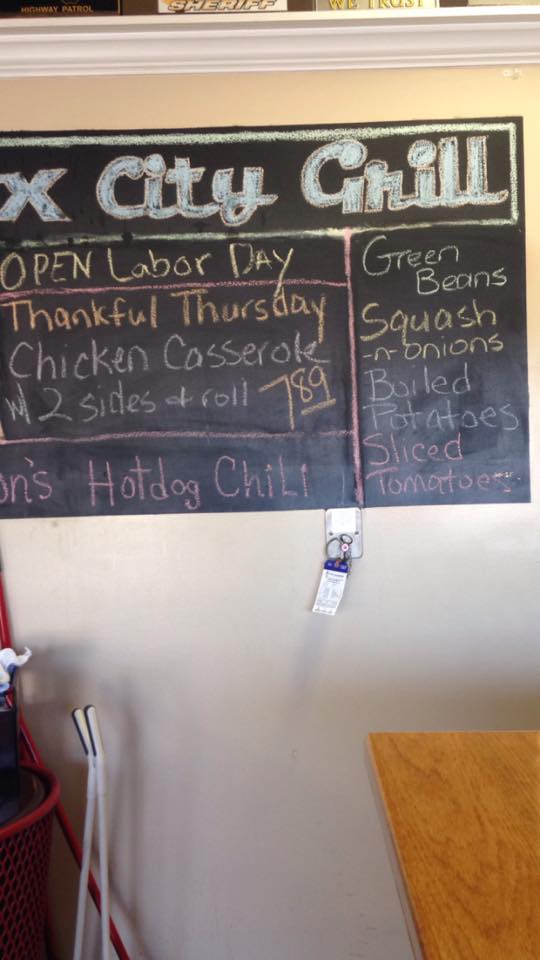 HIGHWAY PATROL
SHERIFF
WE TRUST
x City Grill
OPEN Labor Day
Thankful Thursday
Chicken Casserole
w/ 2 sides & roll 7.89
on's Hotdog Chili
Green
Beans
Squash
-n-onions
Boiled
Potatoes
Sliced
Tomatoes